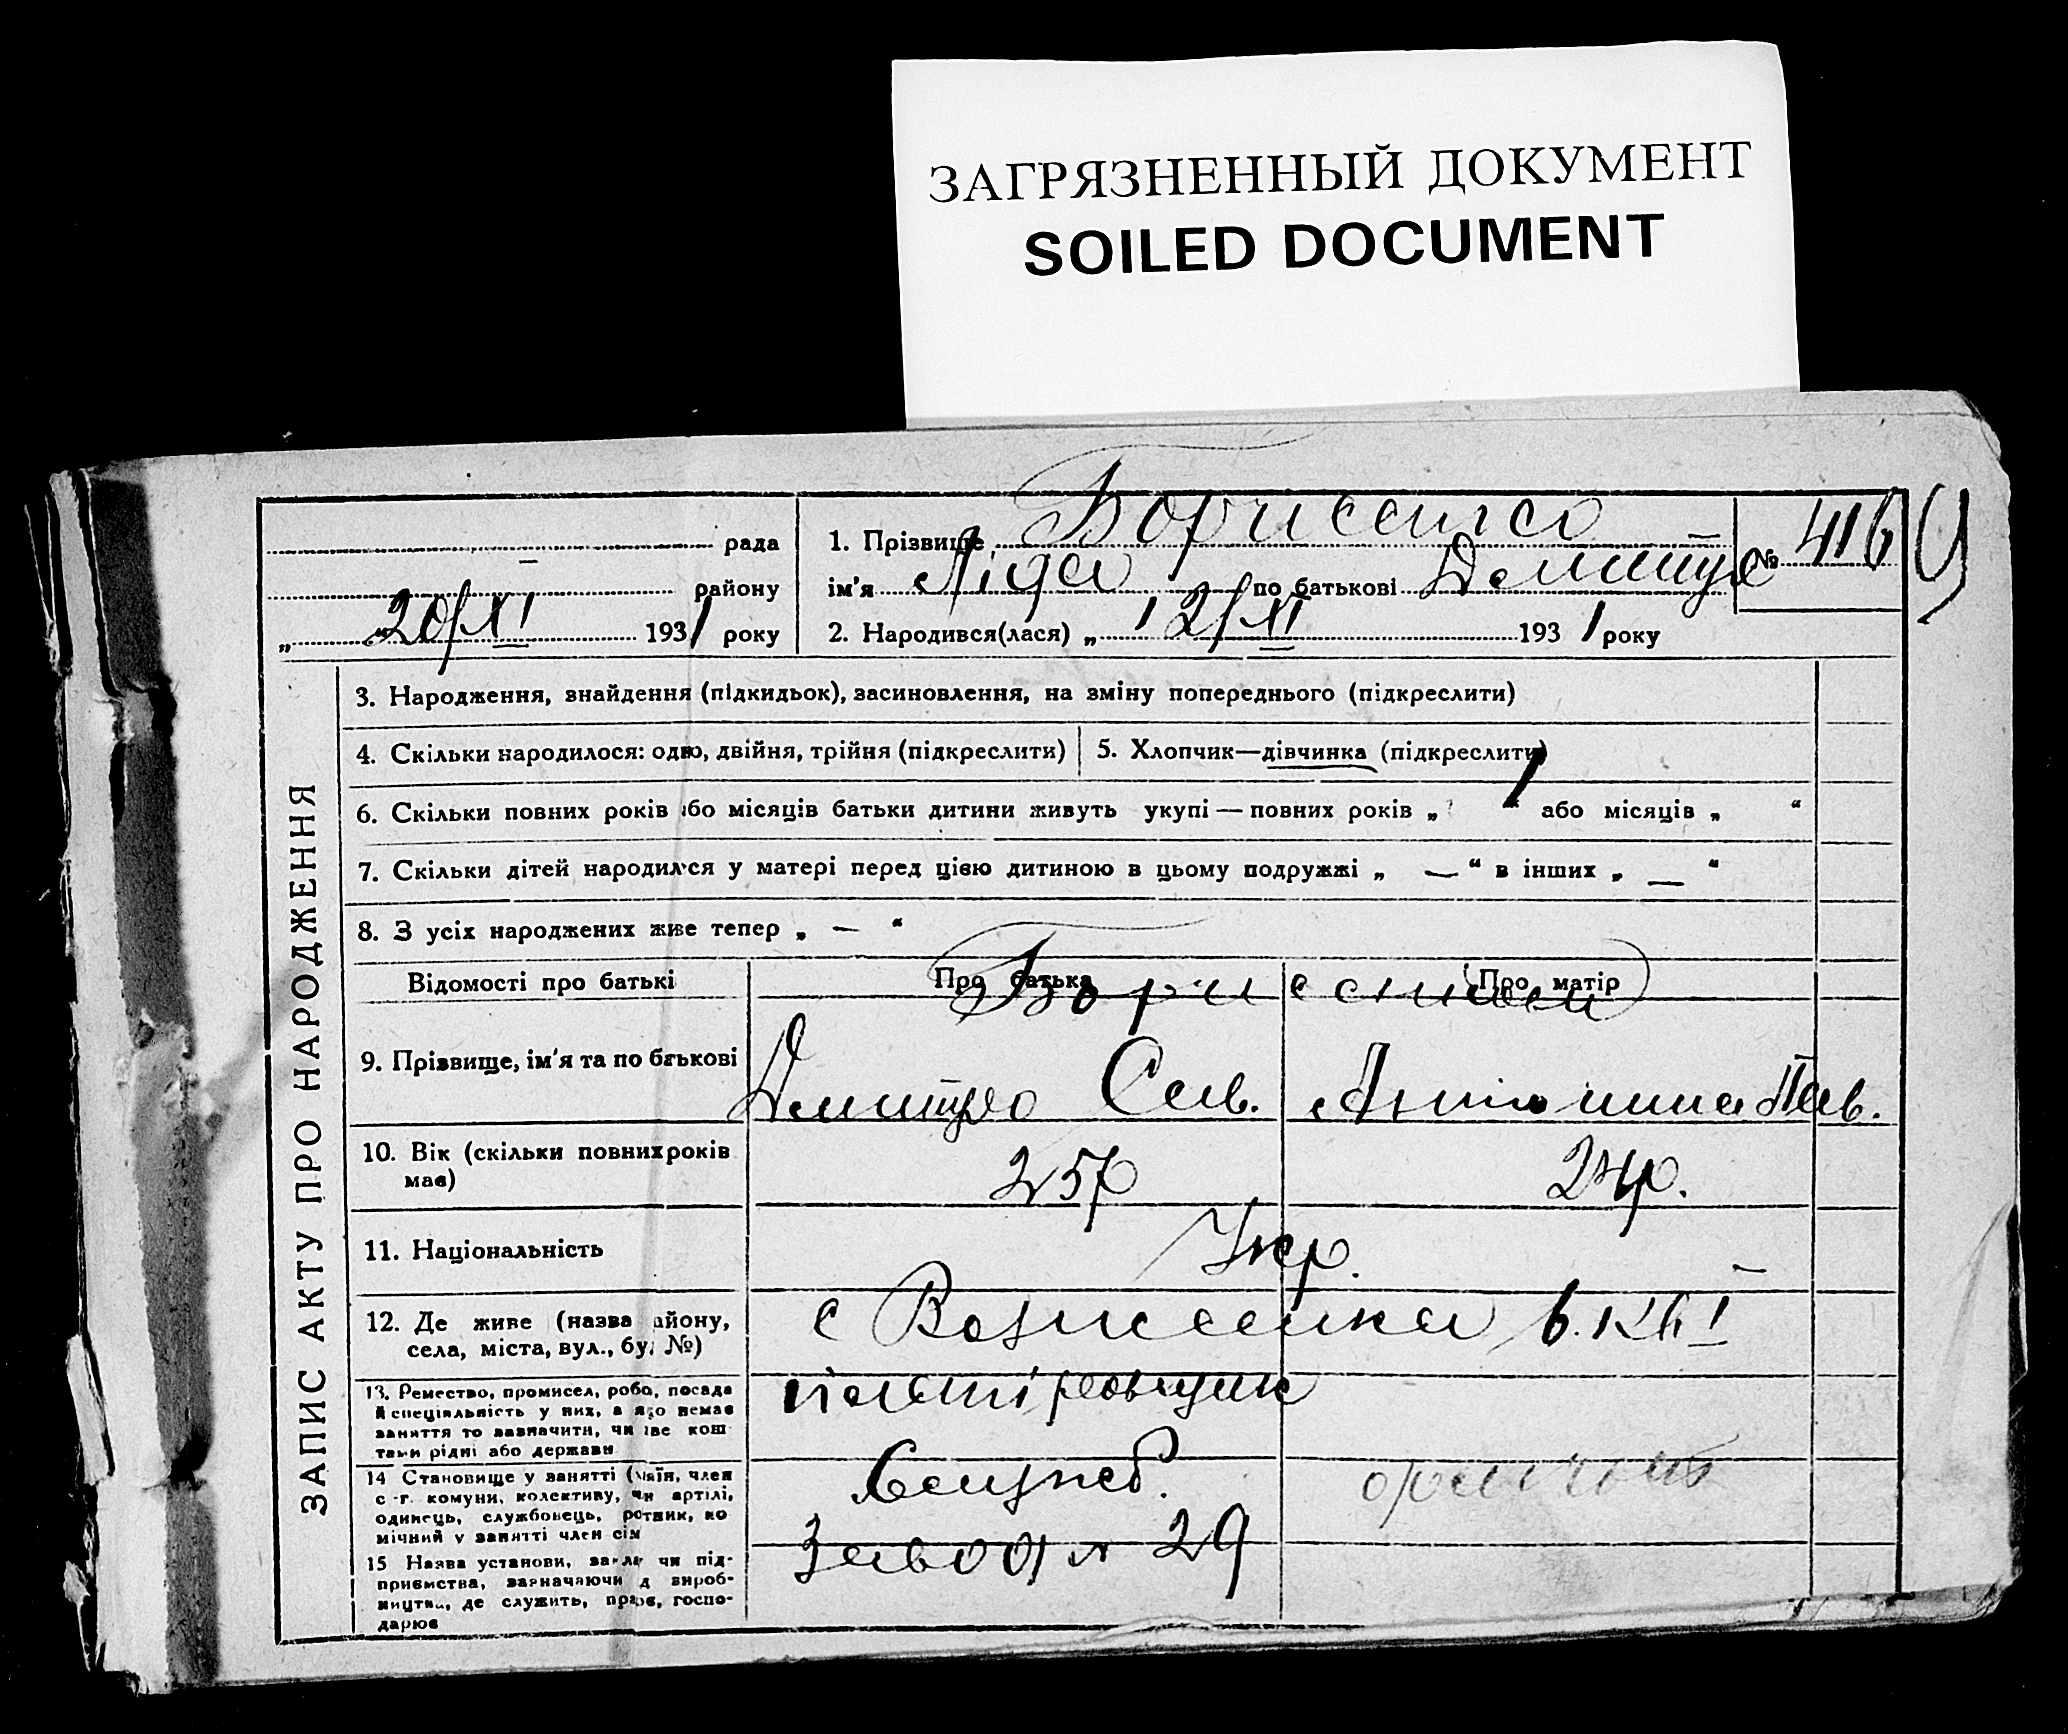 ЗАГРЯЗНЕННЫЙ ДОКУМЕНТ
SOILED DOCUMENT
рада
району
„ 20/XI 1931 року
1. Прізвище Борисенко
ім'я Ліда по батькові Дмитр
№ 416
2. Народився(лася) „ 12/XI 1931 року
ЗАПИС АКТУ ПРО НАРОДЖЕННЯ
3. Народження, знайдення (підкидьок), засиновлення, на зміну попереднього (підкреслити)
4. Скільки народилося: одно, двійня, трійня (підкреслити)
5. Хлопчик—дівчинка (підкреслити)
6. Скільки повних років або місяців батьки дитини живуть укупі — повних років „ 1 “ або місяців „ “
7. Скільки дітей народилося у матері перед цією дитиною в цьому подружжі „ — “ в інших „ — “
8. З усіх народжених живе тепер „ — “
Відомості про батькі
Про батька
Про матір
Борисенки
9. Прізвище, ім'я та по батькові
Дмитро Сав.
Антонина Пав.
10. Вік (скільки повних років має)
25р
24р.
11. Національність
Укр.
12. Де живе (назва району,
села, міста, вул., буд. №)
с Вознесенка
13. Ремество, промисел, робо, посада
й спеціяльність у них, а якщо немає
заняття то зазначити, чи їве кош
тами рідні або держави
14 Становище у занятті (хазяїн, член
с-г. комуни, колективу, чи артілі,
одинець, службовець, робітник, по
мічний у занятті член сім
Служб.
15 Назва установи, закладу чи під-
приємства, зазначаючи д вироб-
ництва, де служить, працює, госпо-
дарює
Завод № 29